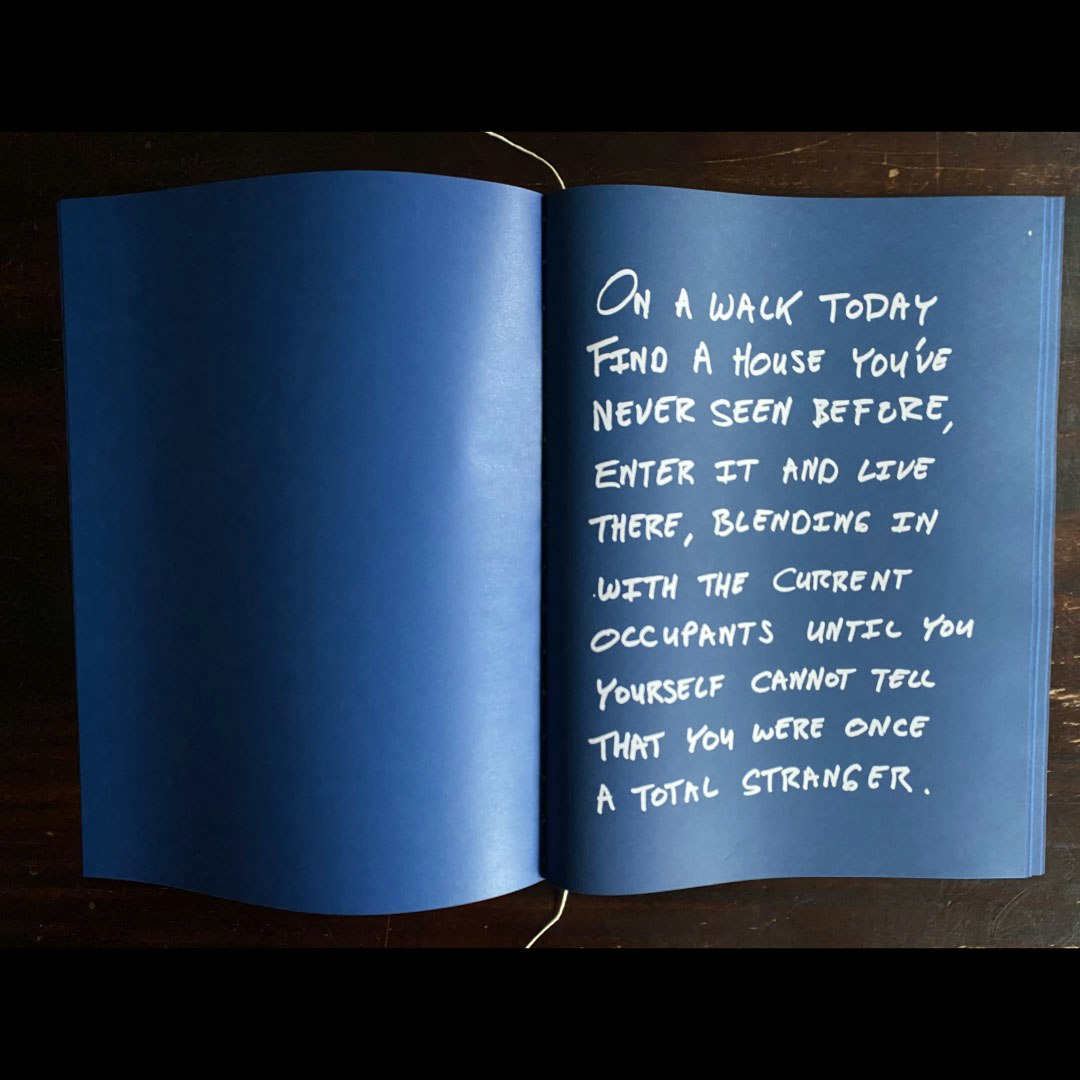 ON A WALK TODAY
FIND A HOUSE YOU'VE
NEVER SEEN BEFORE,
ENTER IT AND LIVE
THERE, BLENDING IN
WITH THE CURRENT
OCCUPANTS UNTIL YOU
YOURSELF CANNOT TELL
THAT YOU WERE ONCE
A TOTAL STRANGER.